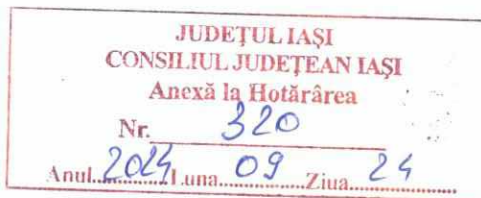 JUDEȚUL IAȘI
CONSILIUL JUDEȚEAN IAȘI
Anexă la Hotărârea
Nr. 320
Anul 2024 Luna 09 Ziua 24